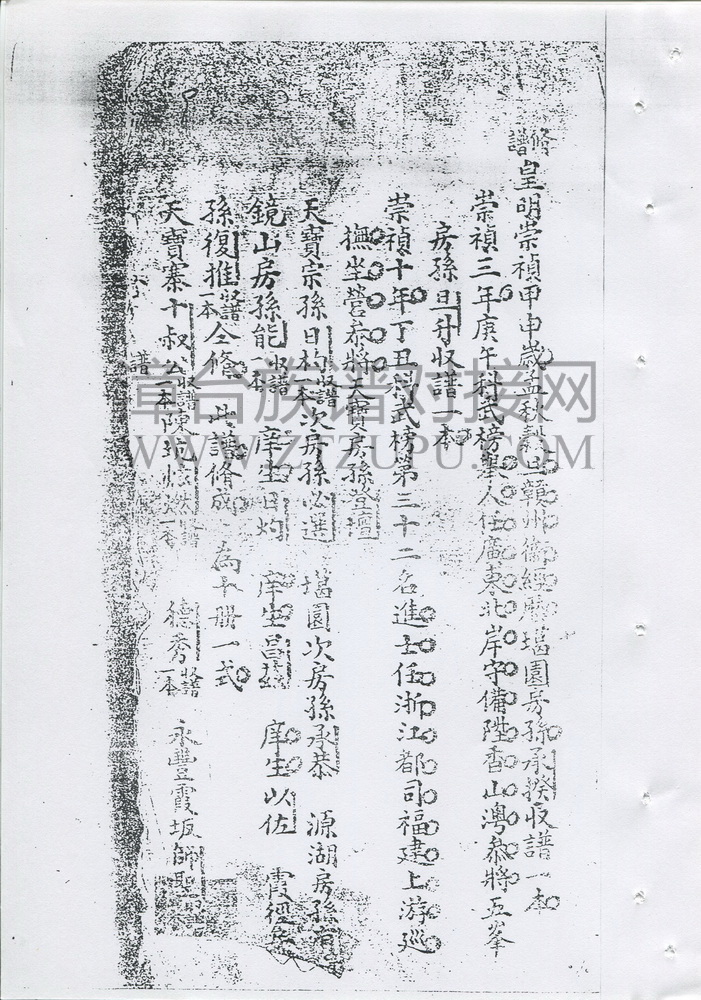 修譜
皇明崇禎甲申歲孟秋穀旦贛州衛經歷墖園房孫承揆收譜一本
崇禎三年庚午科武榜舉人任廣東北岸守備陞香山灣叅將五峯
房孫日升收譜一本
崇禎十年丁丑科武榜第三十二名進士任浙江都司福建上游巡
撫坐營叅將天寶房孫登壇
天寶宗孫日杓收譜一本次房孫必選 墖園次房孫承恭 源湖房孫有
鏡山房孫能收譜一本 庠生日灼 庠生昌 庠生以佐 霞徑
孫復推收譜一本仝脩 此譜脩成 為十冊一式
天寶寨十叔公收譜一本陳坂 收譜一本 德秀收譜一本 永豐霞坂師聖
譜
章台族谱对接网
WWW.ZTZUPU.COM